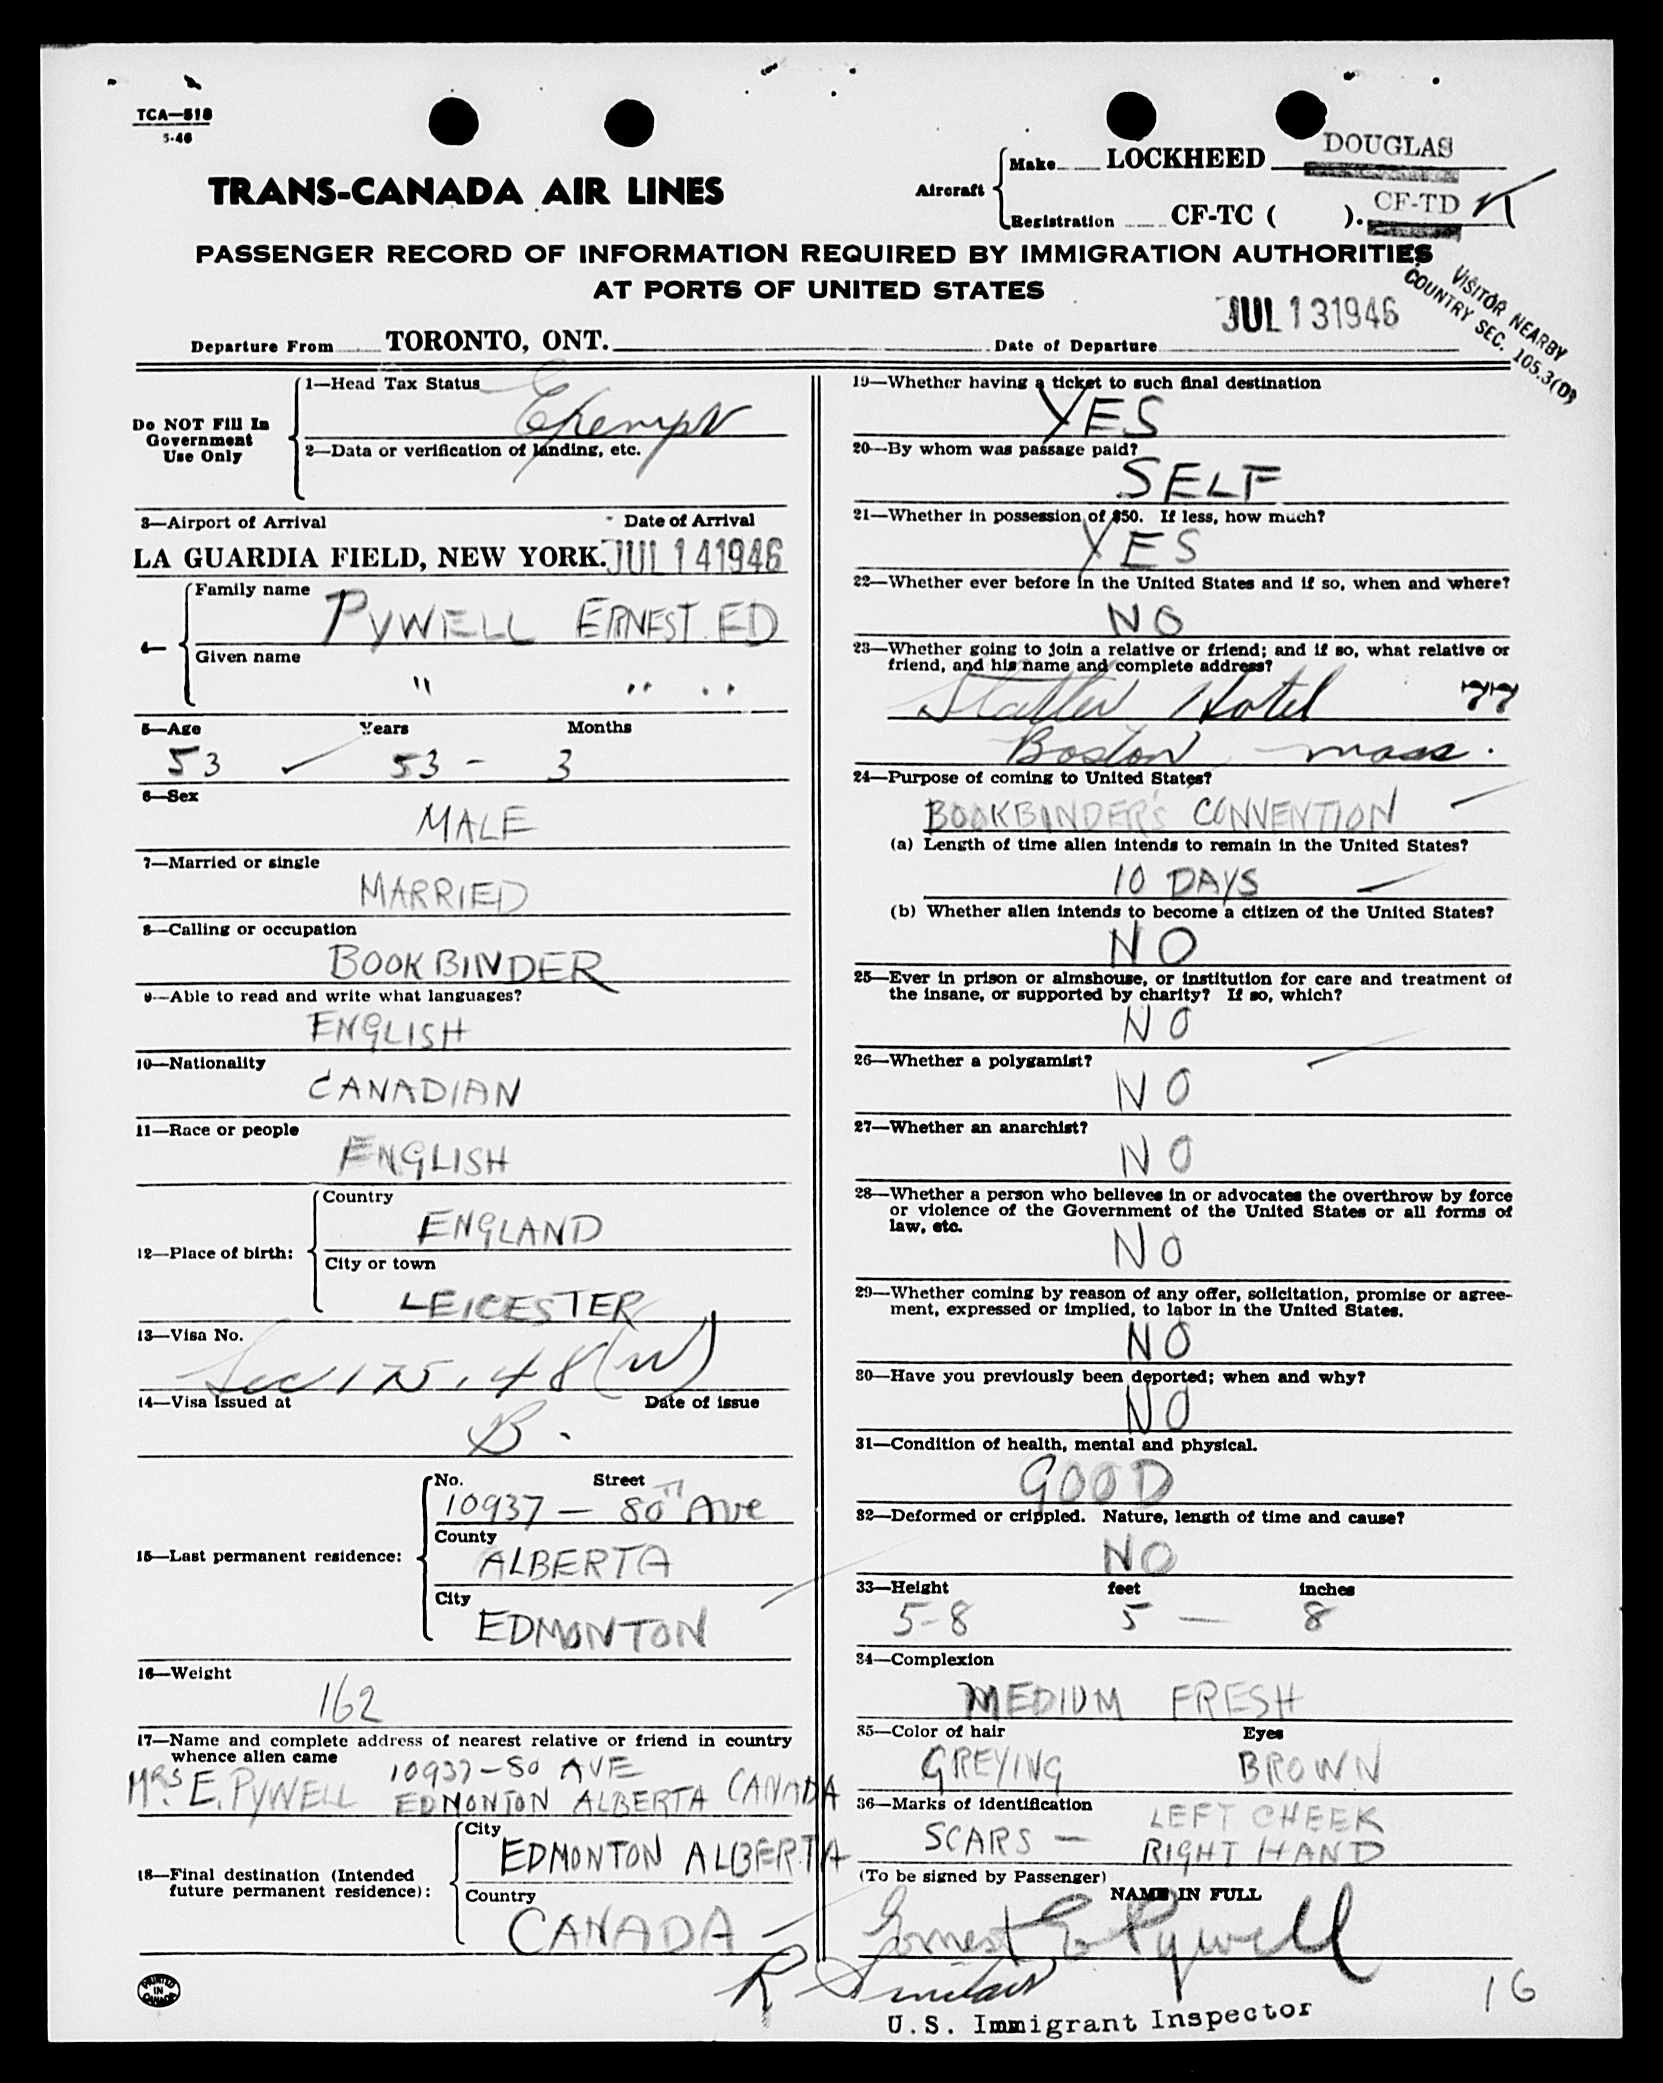 TCA—518
5-46
TRANS-CANADA AIR LINES
Aircraft
Make LOCKHEED DOUGLAS
Registration CF-TC ( ). CF-TD
PASSENGER RECORD OF INFORMATION REQUIRED BY IMMIGRATION AUTHORITIES
AT PORTS OF UNITED STATES
VISITOR NEARBY
COUNTRY SEC. 105.3(D)
Departure From TORONTO, ONT. Date of Departure JUL 13 1946
Do NOT Fill In
Government
Use Only
1—Head Tax Status
Exempt
2—Data or verification of landing, etc.
3—Airport of Arrival Date of Arrival
LA GUARDIA FIELD, NEW YORK. JUL 14 1946
4—
Family name PYWELL ERNEST ED
Given name " " "
5—Age Years Months
53 53 - 3
6—Sex
MALE
7—Married or single
MARRIED
8—Calling or occupation
BOOKBINDER
9—Able to read and write what languages?
ENGLISH
10—Nationality
CANADIAN
11—Race or people
ENGLISH
12—Place of birth:
Country
ENGLAND
City or town
LEICESTER
13—Visa No.
Sec 175.48(W)
14—Visa Issued at Date of issue
B.
15—Last permanent residence:
No. Street
10937 — 80TH AVE
County
ALBERTA
City
EDMONTON
16—Weight
162
17—Name and complete address of nearest relative or friend in country
whence alien came
MRS E. PYWELL 10937-80 AVE
EDMONTON ALBERTA CANADA
18—Final destination (Intended
future permanent residence):
City
EDMONTON ALBERTA
Country
CANADA
PRINTED
IN
CANADA
19—Whether having a ticket to such final destination
YES
20—By whom was passage paid?
SELF
21—Whether in possession of $50. If less, how much?
YES
22—Whether ever before in the United States and if so, when and where?
NO
23—Whether going to join a relative or friend; and if so, what relative or
friend, and his name and complete address?
Statler Hotel
Boston mass.
24—Purpose of coming to United States?
BOOKBINDER'S CONVENTION
(a) Length of time alien intends to remain in the United States?
10 DAYS
(b) Whether alien intends to become a citizen of the United States?
NO
25—Ever in prison or almshouse, or institution for care and treatment of
the insane, or supported by charity? If so, which?
NO
26—Whether a polygamist?
NO
27—Whether an anarchist?
NO
28—Whether a person who believes in or advocates the overthrow by force
or violence of the Government of the United States or all forms of
law, etc.
NO
29—Whether coming by reason of any offer, solicitation, promise or agree-
ment, expressed or implied, to labor in the United States.
NO
30—Have you previously been deported; when and why?
NO
31—Condition of health, mental and physical.
GOOD
32—Deformed or crippled. Nature, length of time and cause?
NO
33—Height feet inches
5-8 5 — 8
34—Complexion
MEDIUM FRESH
35—Color of hair Eyes
GREYING BROWN
36—Marks of identification
SCARS — LEFT CHEEK
RIGHT HAND
(To be signed by Passenger)
NAME IN FULL
Ernest E Pywell
R Sinclair
U.S. Immigrant Inspector
16